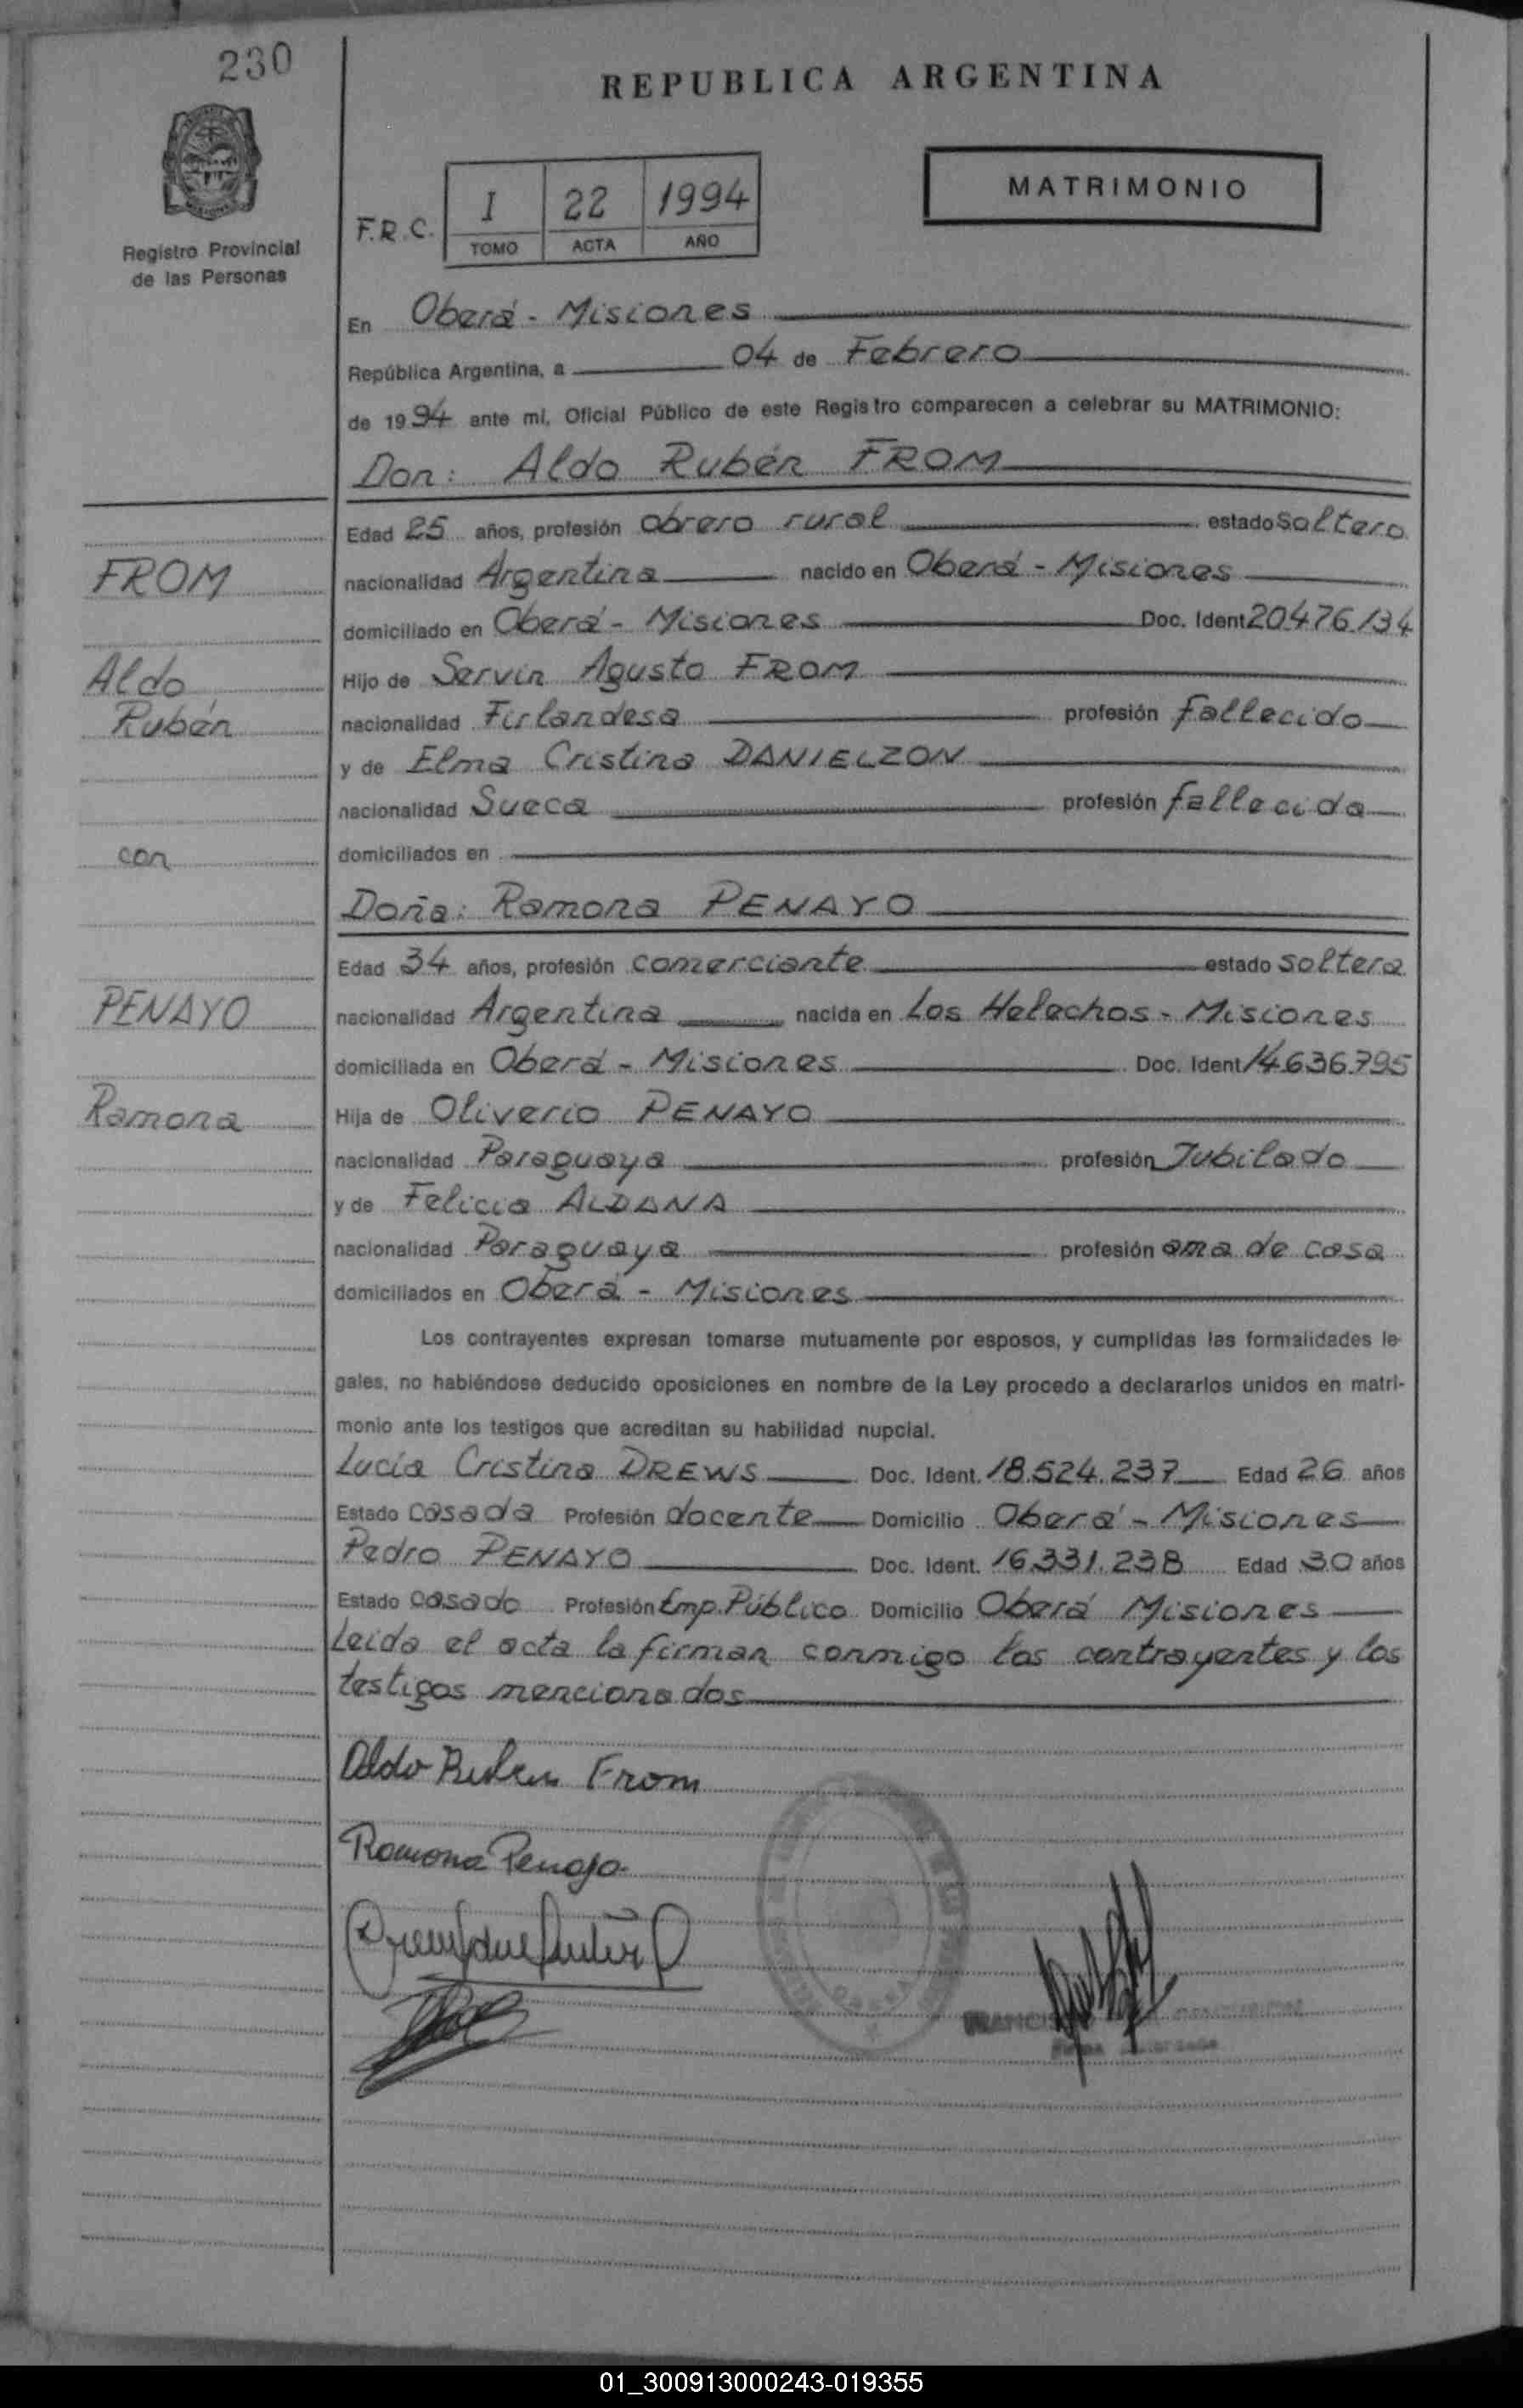 230
REPUBLICA ARGENTINA
MATRIMONIO
F.R.C. I 22 1994
TOMO ACTA AÑO
Registro Provincial
de las Personas
En Oberá - Misiones
República Argentina, a 04 de Febrero
de 1994 ante mi, Oficial Público de este Registro comparecen a celebrar su MATRIMONIO:
Don: Aldo Rubén FROM
Edad 25 años, profesión obrero rural estado soltero
FROM
nacionalidad Argentina nacido en Oberá - Misiones
domiciliado en Oberá - Misiones Doc. Ident 20.476.134
Aldo
Hijo de Servin Agusto FROM
Rubén
nacionalidad Firlandesa profesión fallecido
y de Elma Cristina DANIELZON
nacionalidad Sueca profesión fallecida
con
domiciliados en
Doña: Ramona PENAYO
Edad 34 años, profesión comerciante estado soltera
PENAYO
nacionalidad Argentina nacida en Los Helechos - Misiones
domiciliada en Oberá - Misiones Doc. Ident 14.636.795
Ramona
Hija de Oliverio PENAYO
nacionalidad Paraguaya profesión Jubilado
y de Felicia ALDANA
nacionalidad Paraguaya profesión ama de casa
domiciliados en Oberá - Misiones
Los contrayentes expresan tomarse mutuamente por esposos, y cumplidas las formalidades le-
gales, no habiéndose deducido oposiciones en nombre de la Ley procedo a declararlos unidos en matri-
monio ante los testigos que acreditan su habilidad nupcial.
Lucía Cristina DREWS Doc. Ident. 18.524.237 Edad 26 años
Estado casada Profesión docente Domicilio Oberá - Misiones
Pedro PENAYO Doc. Ident. 16.331.238 Edad 30 años
Estado casado Profesión Emp. Público Domicilio Oberá Misiones
Leída el acta la firman conmigo los contrayentes y los
testigos mencionados
Aldo Ruben From
Ramona Penayo
01_300913000243-019355